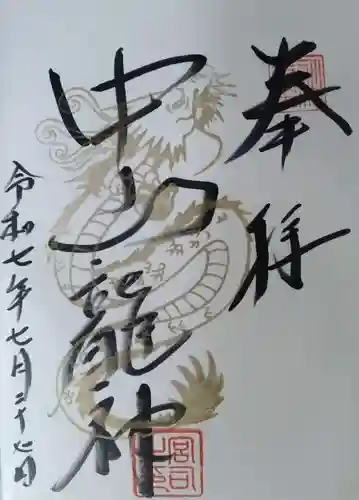 奉拝
中山龍神
令和七年七月二十七日
宮司